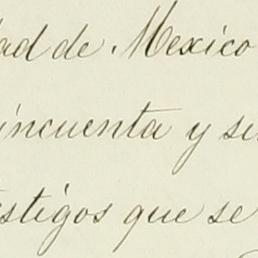 ad de Mexico
incuenta y si
estigos que se